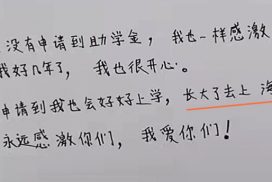 没有申请到助学金，我也一样感激
我好几年了，我也很开心。
申请到我也会好好上学，长大了去上海
永远感激你们，我爱你们！